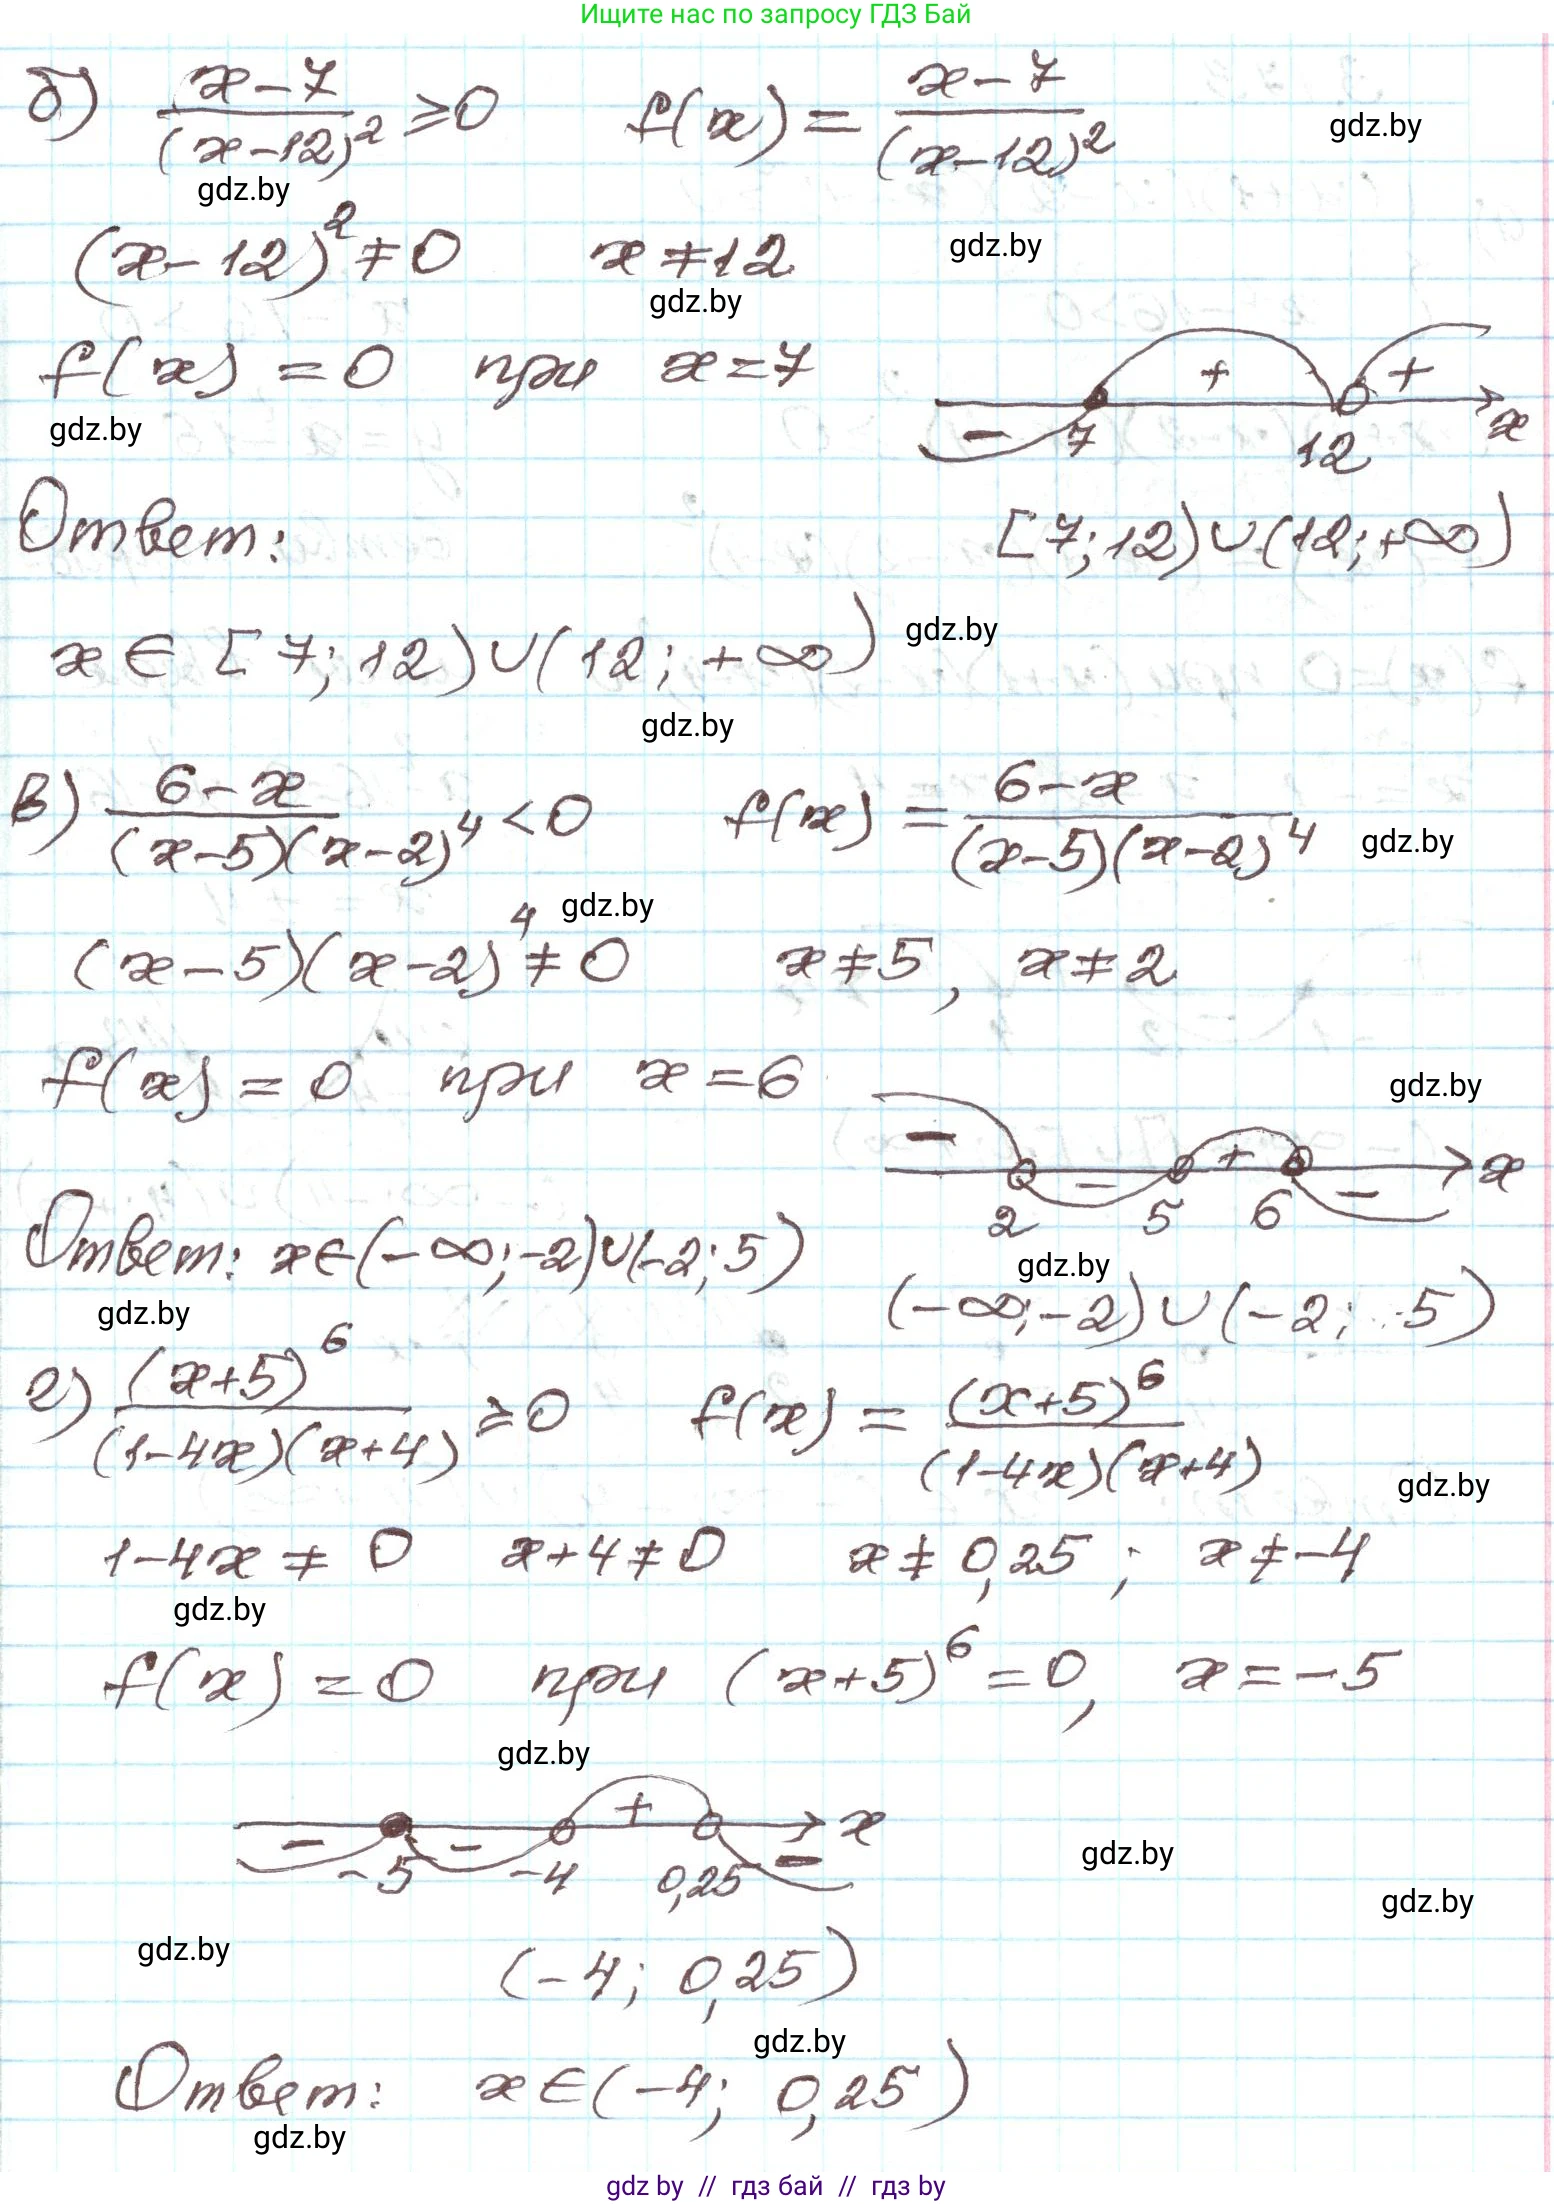 Ищите нас по запросу ГДЗ Бай
б) (x-7)/(x-12)² ≥ 0 f(x) = (x-7)/(x-12)²
gdz.by
gdz.by
(x-12)² ≠ 0 x ≠ 12 gdz.by
gdz.by
f(x) = 0 при x = 7
+ +
gdz.by
- 7 12 x
Ответ: [7; 12) ∪ (12; +∞)
x ∈ [7; 12) ∪ (12; +∞) gdz.by
gdz.by
в) (6-x)/((x-5)(x-2)⁴) < 0 f(x) = (6-x)/((x-5)(x-2)⁴) gdz.by
gdz.by
(x-5)(x-2)⁴ ≠ 0 x ≠ 5, x ≠ 2
f(x) = 0 при x = 6 gdz.by
- - + - x
2 5 6
Ответ: x ∈ (-∞; -2) ∪ (-2; 5) gdz.by
gdz.by (-∞; -2) ∪ (-2; 5)
г) (x+5)⁶/((1-4x)(x+4)) ≥ 0 f(x) = (x+5)⁶/((1-4x)(x+4))
gdz.by
1-4x ≠ 0 x+4 ≠ 0 x ≠ 0,25; x ≠ -4
gdz.by
f(x) = 0 при (x+5)⁶ = 0, x = -5
gdz.by
- - + - x
-5 -4 0,25 gdz.by
gdz.by
gdz.by
(-4; 0,25)
gdz.by
Ответ: x ∈ (-4; 0,25)
gdz.by
gdz by // гдз бай // гдз by